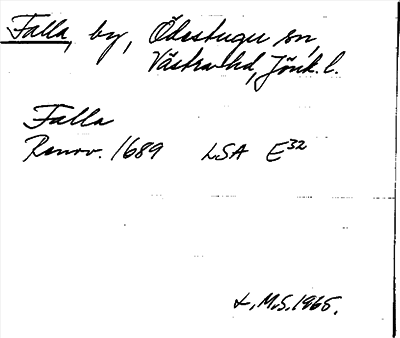 Falla, by, Ödestugu sn,
Västra hd, Jönk. l.
Falla
Renov. 1689 LSA E32
L, M.S. 1965.